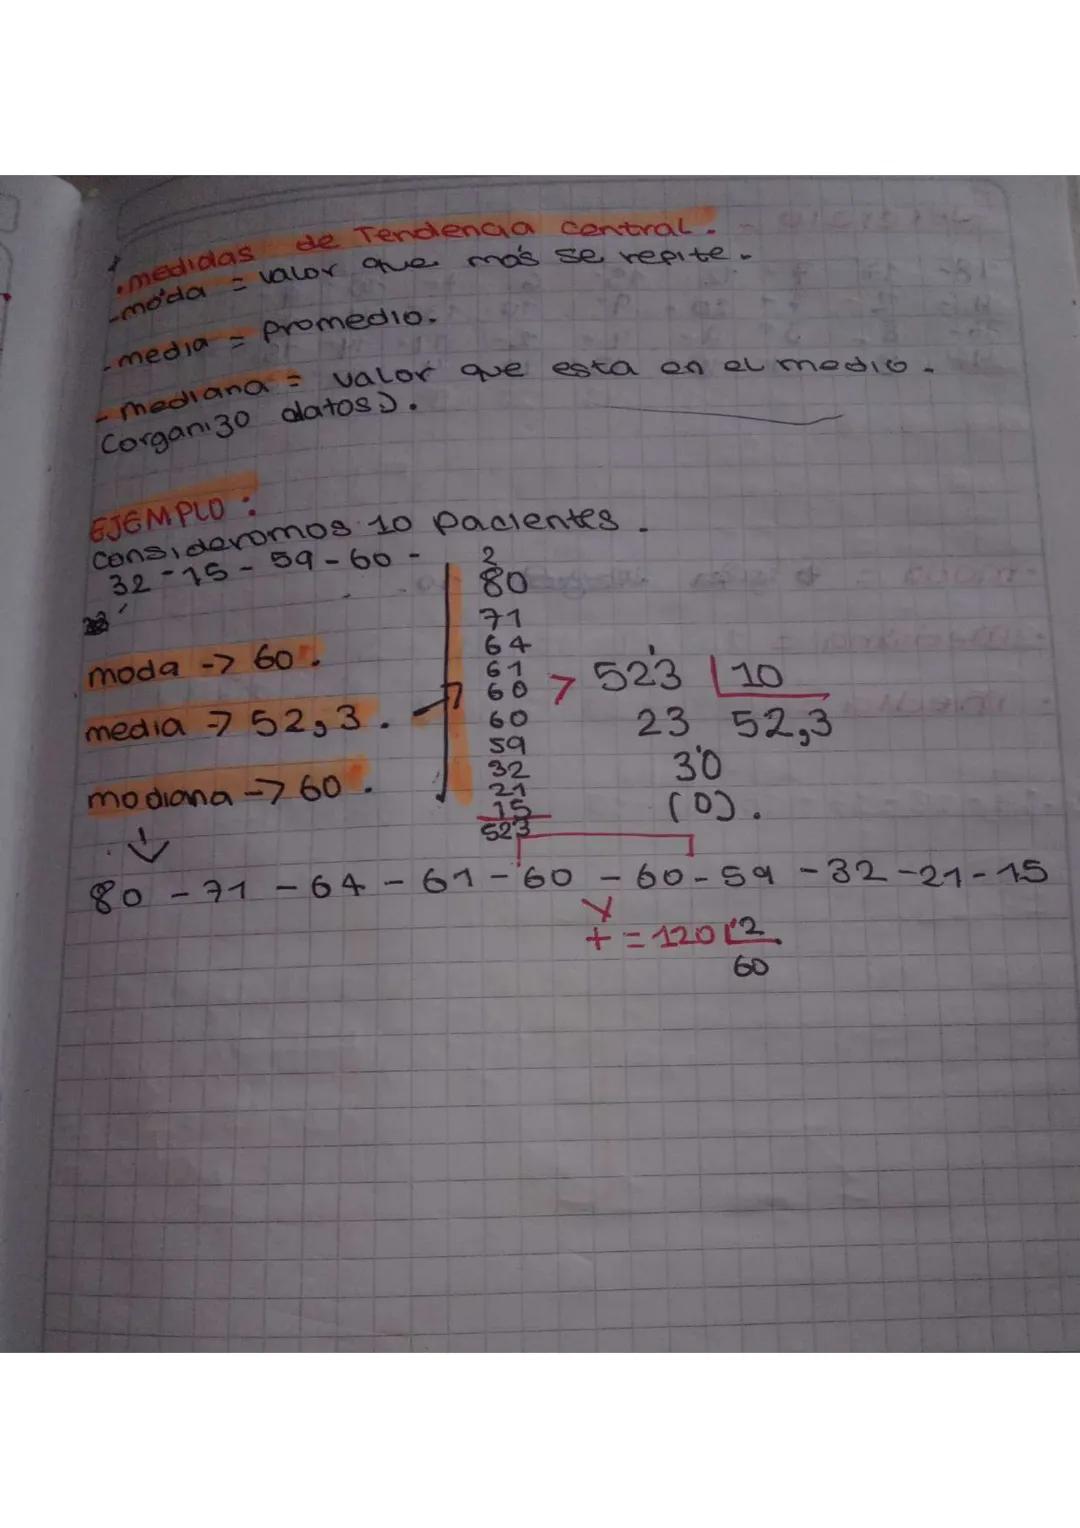 .medidas de Tendencia central.
-moda = valor que más se repite.
-media = promedio.
-mediana = valor que esta en el medio.
(organizo datos).
EJEMPLO:
consideramos 10 pacientes.
32-15-59-60-
moda -> 60.
media -> 52,3.
modiana -> 60.
2
80
71
64
61
60
60
59
32
21
15
523
> 523 10
23 52,3
30
(0).
80 - 71 - 64 - 61 - 60 - 60 - 59 - 32 - 21 - 15
+ = 120 2
60